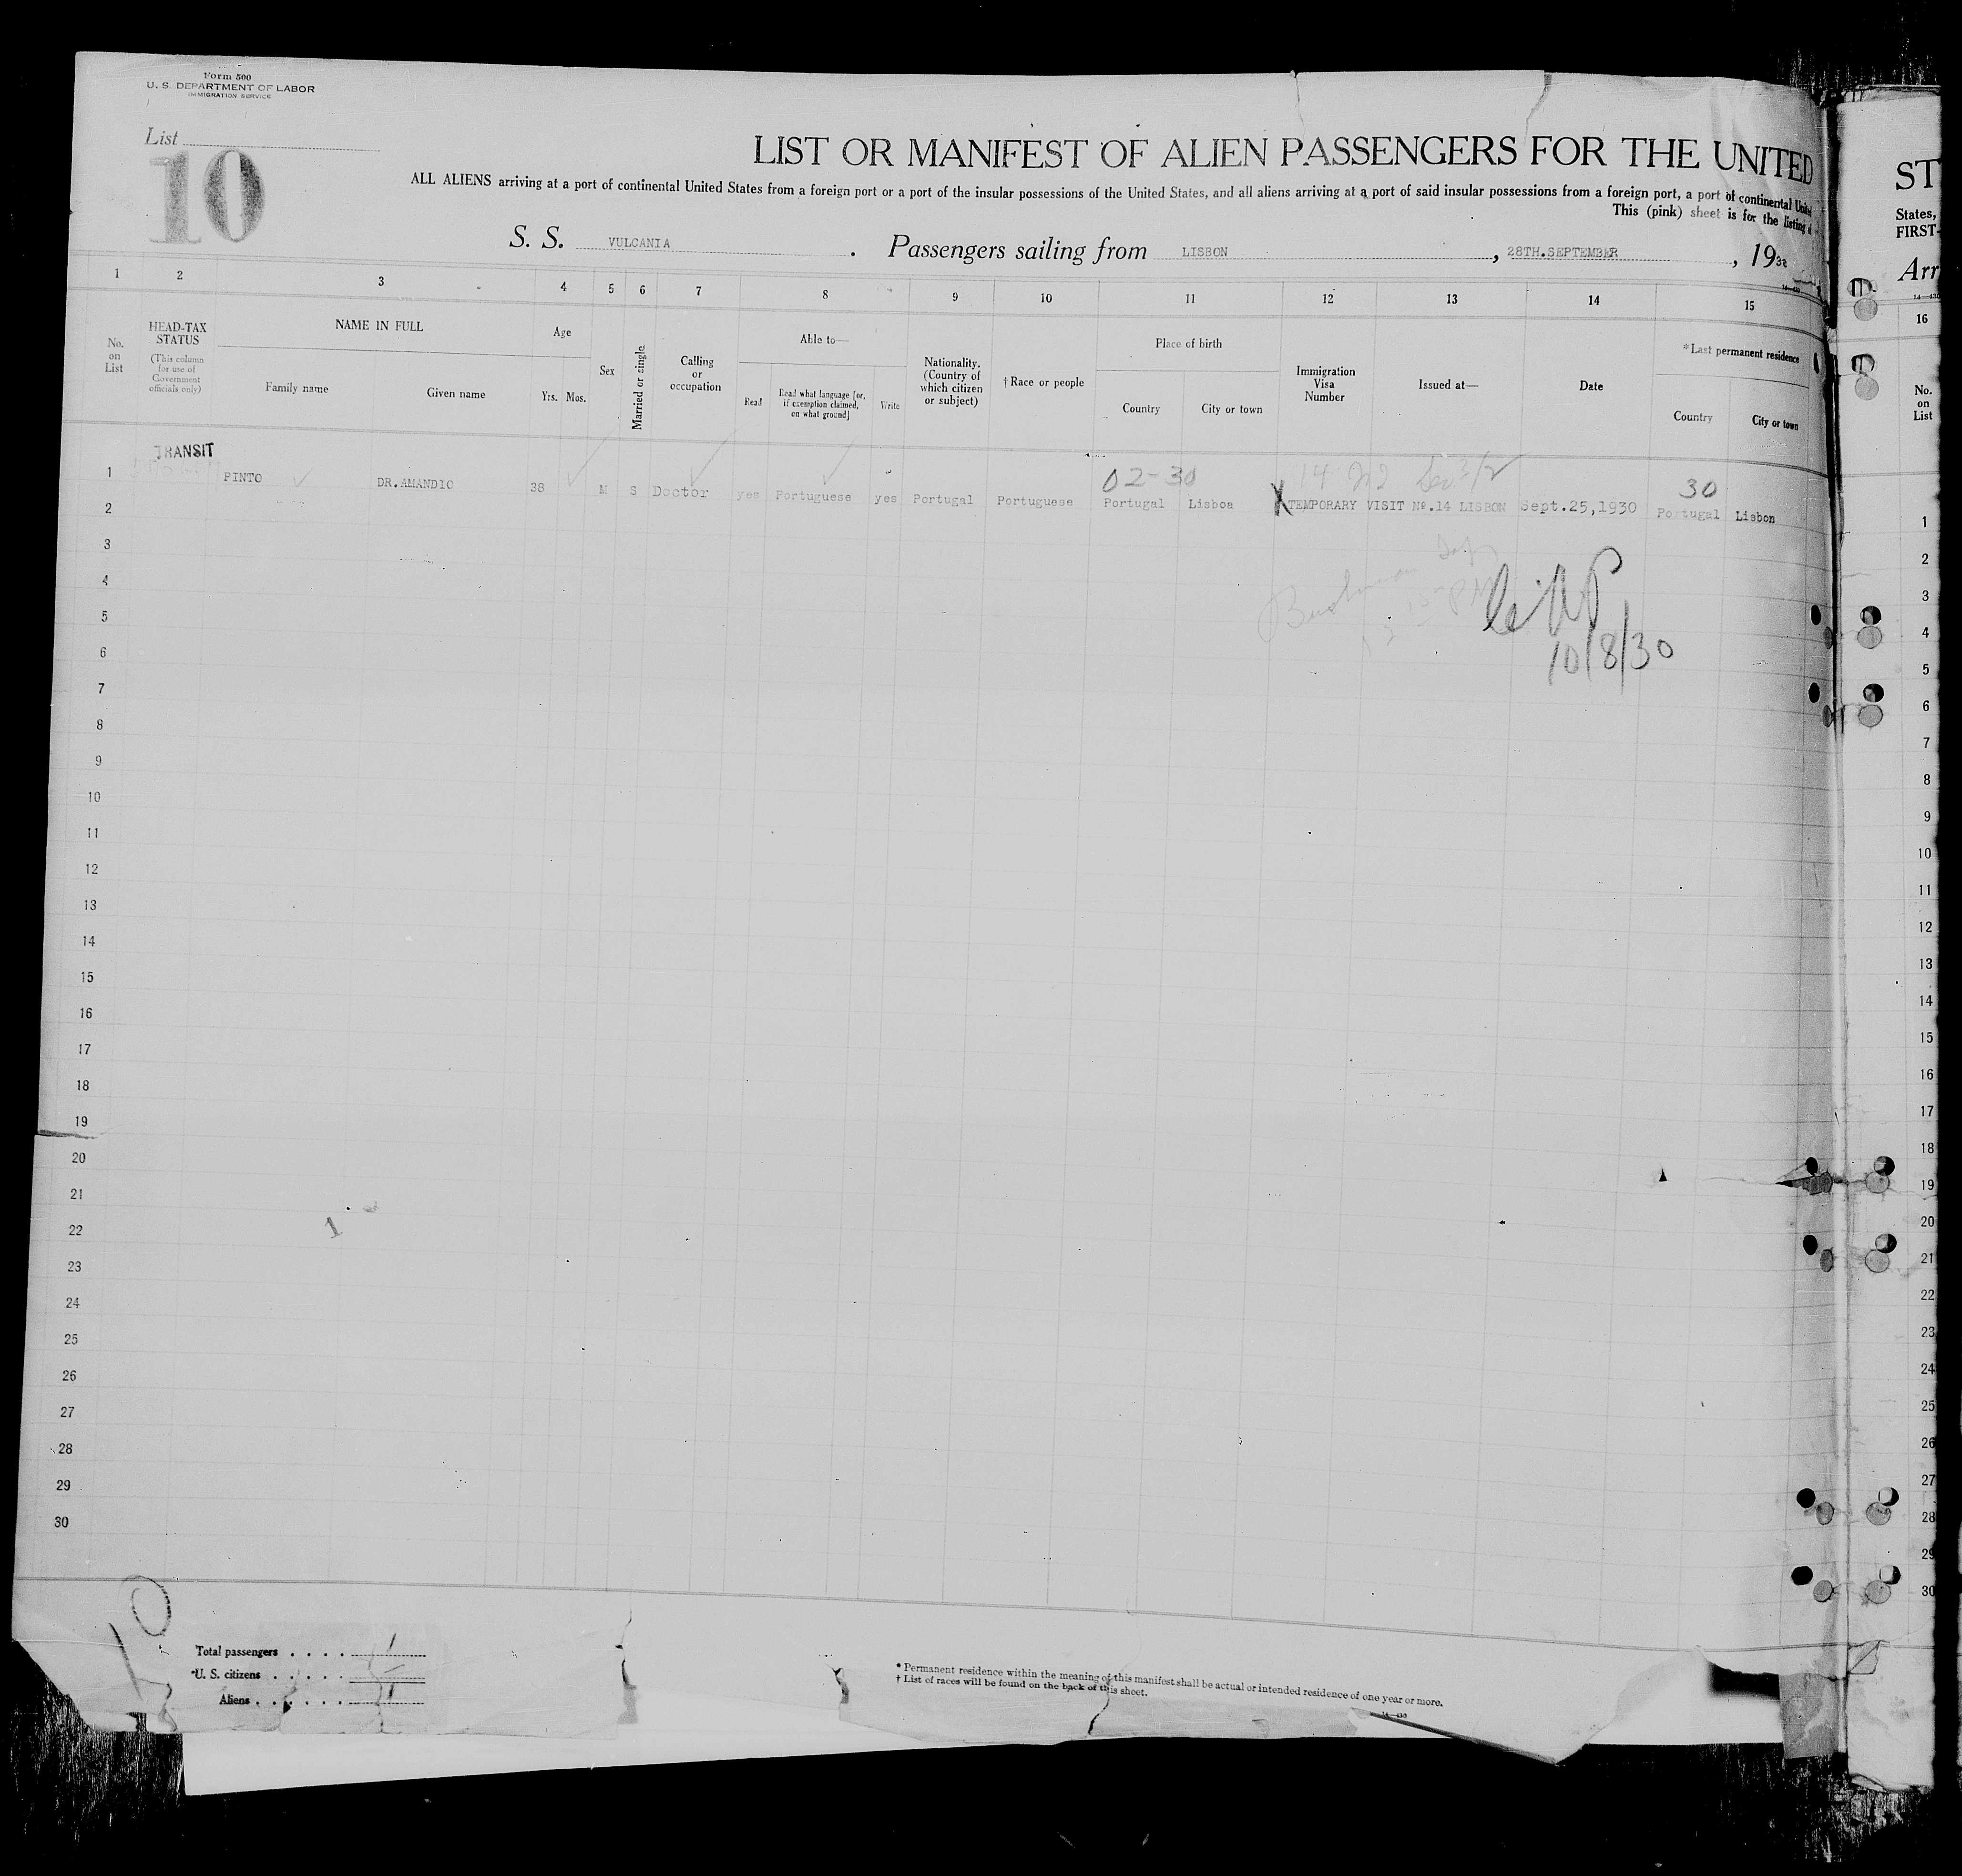 Form 500
U. S. DEPARTMENT OF LABOR
IMMIGRATION SERVICE
List
10
LIST OR MANIFEST OF ALIEN PASSENGERS FOR THE UNITED
ALL ALIENS arriving at a port of continental United States from a foreign port or a port of the insular possessions of the United States, and all aliens arriving at a port of said insular possessions from a foreign port, a port of continental
This (pink) sheet is for the listing
S. S. VULCANIA . Passengers sailing from LISBON , 28TH.SEPTEMBER , 19
1 2 3 4 5 6 7 8 9 10 11 12 13 14 15
No. on List
HEAD-TAX STATUS
(This column for use of Government officials only)
NAME IN FULL
Family name Given name
Age
Yrs. Mos.
Sex
Married or single
Calling or occupation
Able to—
Read
Read what language [or, if exemption claimed, on what ground]
Write
Nationality. (Country of which citizen or subject)
† Race or people
Place of birth
Country City or town
Immigration Visa Number
Issued at—
Date
*Last permanent residence
Country City or town
TRANSIT
02-30
30
PINTO DR.AMANDIO 38 M S Doctor yes Portuguese yes Portugal Portuguese Portugal Lisboa X TEMPORARY VISIT Nº.14 LISBON Sept.25,1930 Portugal Lisbon
10/8/30
1
2
3
4
5
6
7
8
9
10
11
12
13
14
15
16
17
18
19
20
21
22
23
24
25
26
27
28
29
30
1
10
Total passengers . . . . 1
*U. S. citizens . . . . . —
Aliens . . . . . . 1
* Permanent residence within the meaning of this manifest shall be actual or intended residence of one year or more.
† List of races will be found on the back of this sheet.
14—430
ST
States,
FIRST-
Arr
16
No. on List
1
2
3
4
5
6
7
8
9
10
11
12
13
14
15
16
17
18
19
20
21
22
23
24
25
26
27
28
29
30